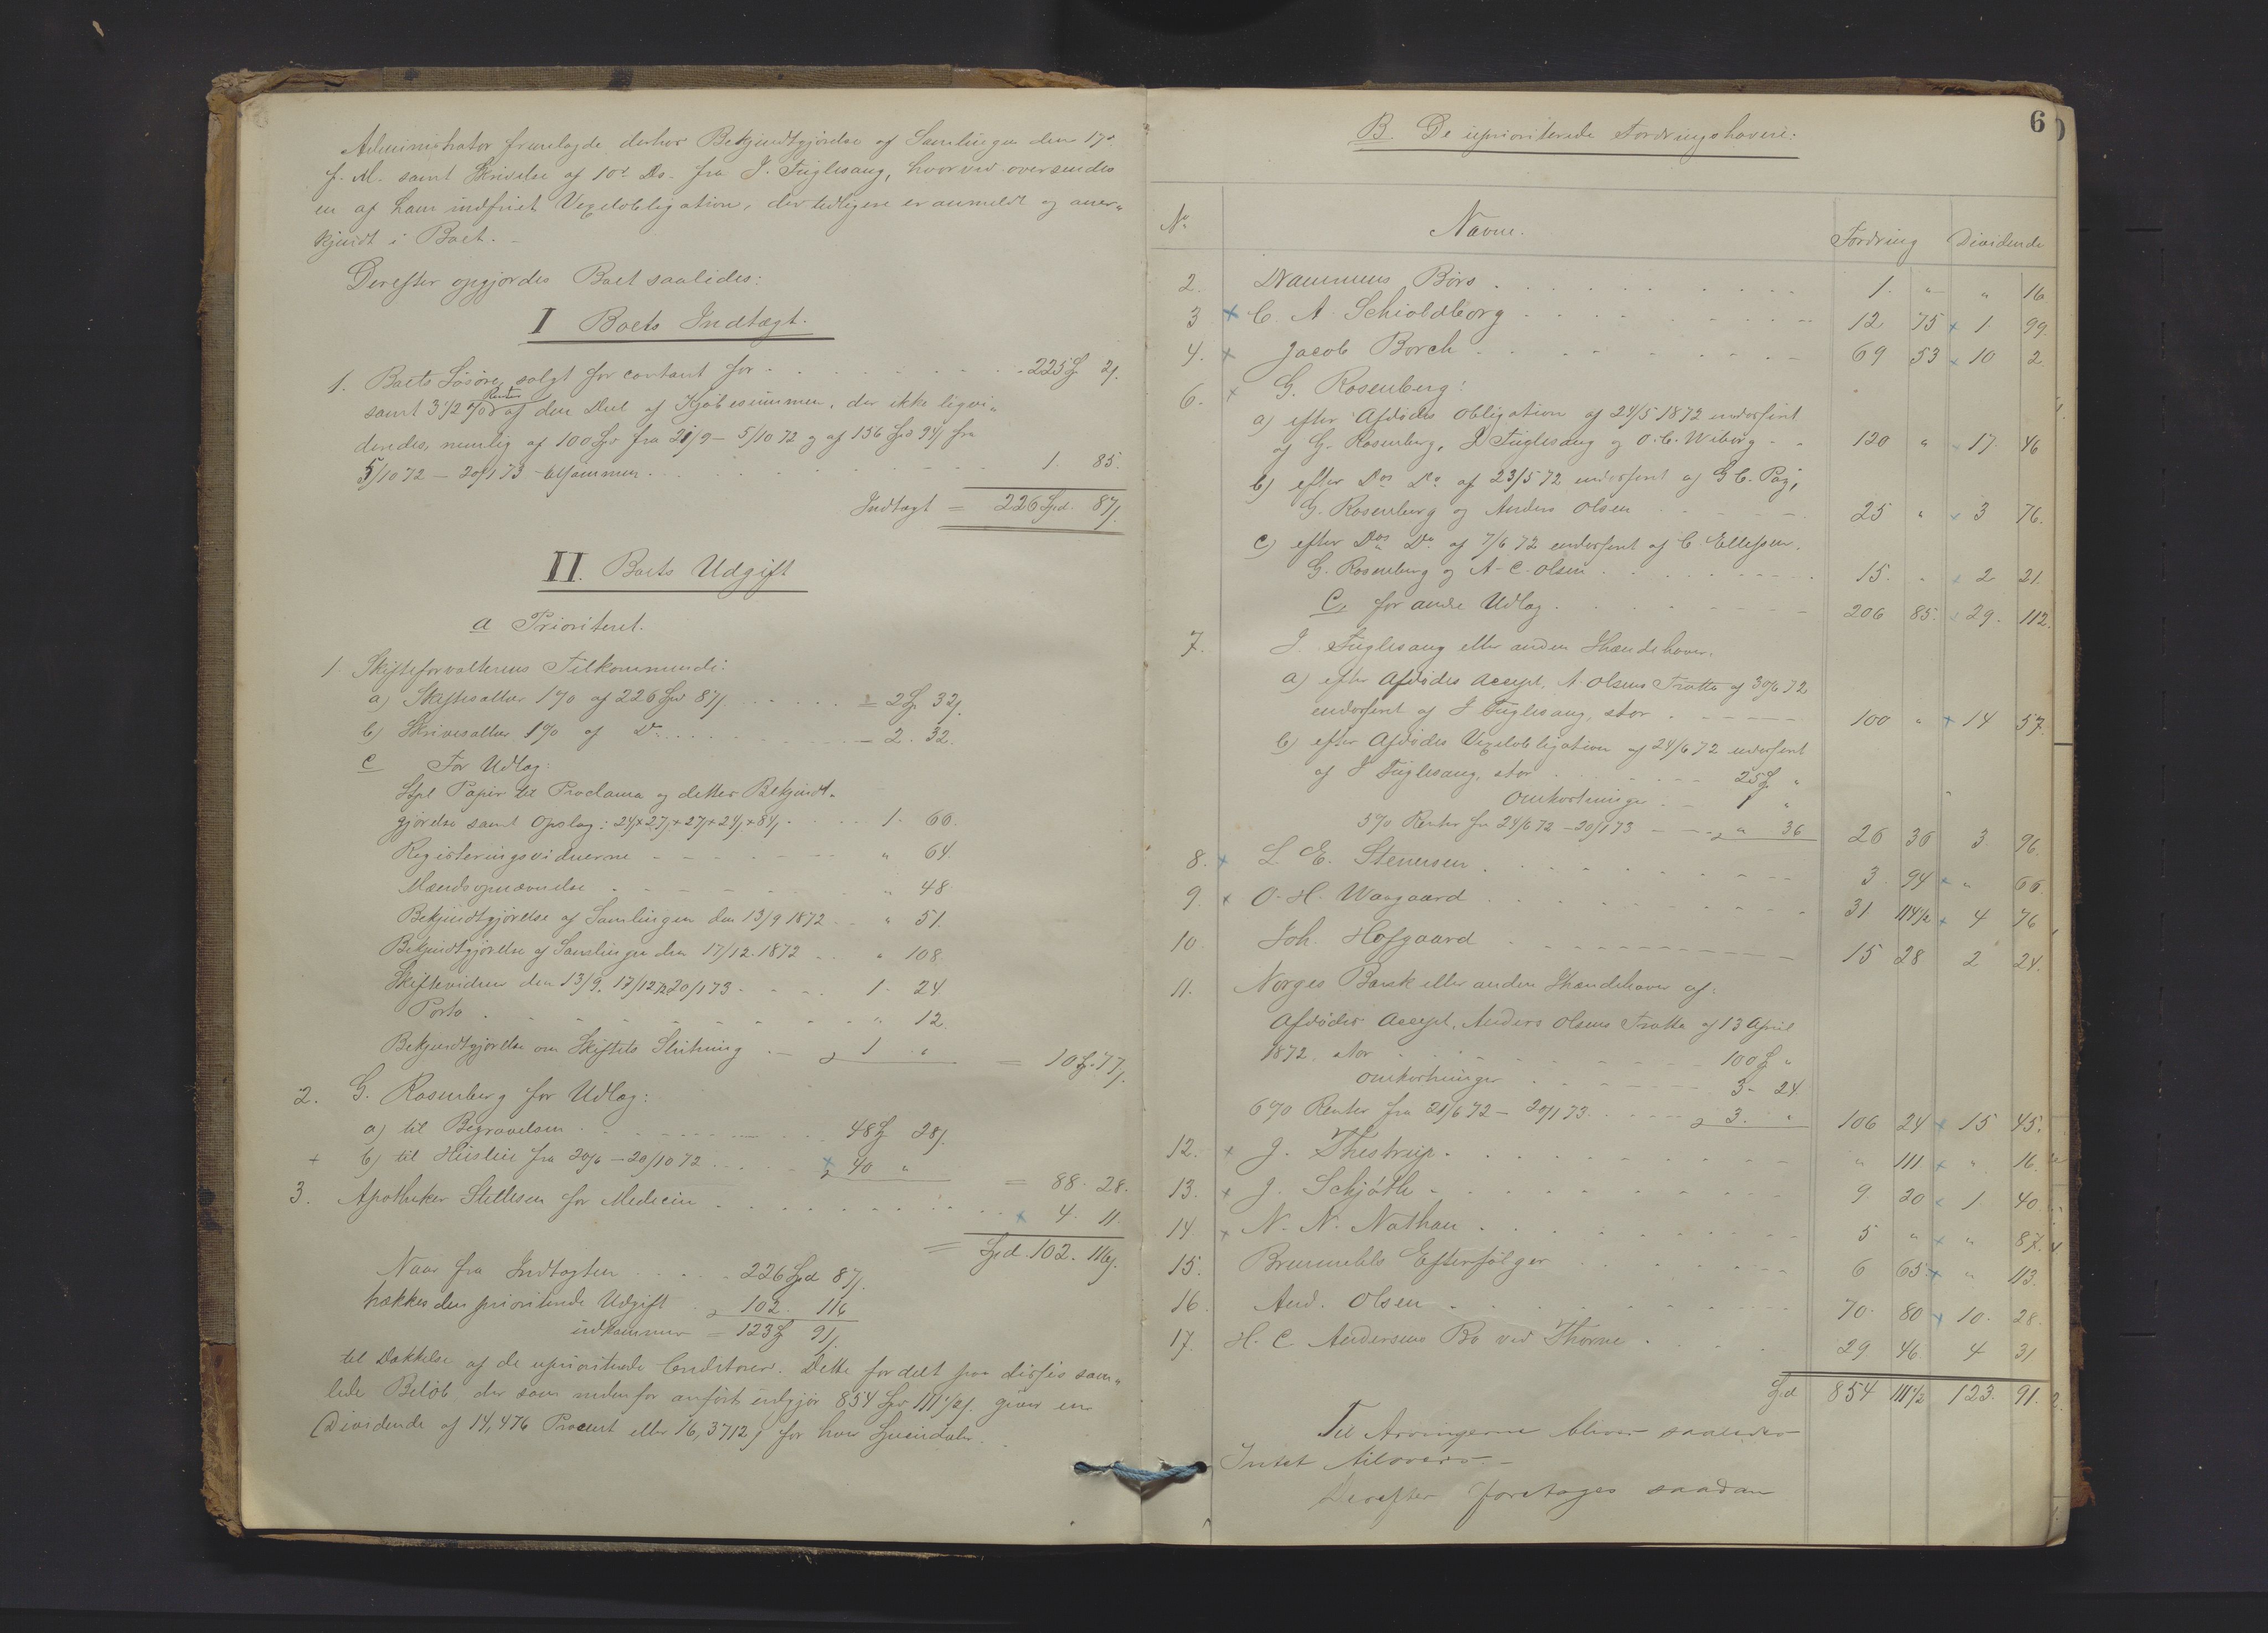 Administrator fremlagde derhos Bekjendtgjørelse af Samlingen den 17de
f. M. samt Skrivelse af 10de Ds. fra J. Fuglesang, hvorved oversendes
en af ham indfriet Vexelobligation, der tidligere er anmeldt og aner„
kjendt i Boet. –
Derefter opgjordes Boet saaledes:
I Boets Indtægt.
1. Boets Løsøre, solgt for contant for . . . 225 Spd 2/.
Renter
samt 3 1/2 % af den Deel af Kjøbesummen, der ikke liqvi„
deredes, nemlig af 100 Spd fra 21/9 – 5/10 72 og af 156 Spd 94/ fra
5/10 72 – 20/1 73 tilsammen . . . 1. 85.
Indtægt = 226 Spd. 87/.
II. Boets Udgift
a Prioriteret.
1. Skifteforvalterens Tilkommende:
a) Skiftesallær 1% af 226 Spd 87/. . . . = 2 Spd 32/.
b) Skriversallær 1% af Do . . . – 2. 32.
c For Udlæg:
Stpl Papir til Proclama og dettes Bekjendt„
gjørelse samt Opslag: 24/ + 27/ + 27/ + 24/ + 84/. . . . 1. 66.
Registeringsvidnerne – – – " 64.
Mændsopnævnelse . – – – " 48.
Bekjendtgjørelse af Samlingen den 13/9 1872 . . " 51.
Bekjendtgjørelse af Samlingen den 17/12 1872 . . " 108.
Skiftevidner den 13/9, 17/12 72, 20/1 73 . . . 1. 24
Porto . . . " 12.
Bekjendtgjørelse om Skiftets Slutning . – 1 " = 10 Spd. 77/.
2. G. Rosenberg for Udlæg:
a) til Begravelsen . . . 48 Spd 28/.
+ b) til Husleie fra 20/6 – 20/10 72 . . . + 40 " = 88. 28.
3. Apotheker Stellesen for Medicin . . . + 4. 11.
= Spd. 102. 116/.
Naar fra Indtægten . . . 226 Spd 87/.
trækkes den prioriterede Udgift . 102. 116
udkommer = 123 Spd 91/.
til Dækkelse af de uprioriterede Creditorer. Dette fordelt paa disses sam„
lede Beløb, der som nedenfor anført udgjør 854 Spd 111 1/2/. giver en
Dividende af 14,476 Procent eller 16,3712/ for hver Speciedaler.
6
B. De uprioriterede Fordringshavere:
No Navne. Fordring Dividende
2. Drammens Børs . . . 1. " " 16.
3 + C. A. Schioldborg . . . 12 75 + 1. 99.
4. + Jacob Borch . . . 69 53 + 10 2.
6. + G. Rosenberg:
a) efter Afdødes Obligation af 24/5 1872 endosseret
af G. Rosenberg, J Fuglesang og O. C. Wiborg . . 120 " 17. 46
b) efter Ds Do af 23/5 72 endosseret af G C. Pay,
G. Rosenberg og Anders Olsen . . . 25 " + 3 76.
c) efter Ds Do af 7/6 72 endosseret af C. Ellefsen,
G. Rosenberg og A. C. Olsen . . . 15. " + 2 21.
C, for andre Udlæg . . . 206 85. + 29. 112.
7. J. Fuglesang eller anden Ihændehaver.
a) efter Afdødes Accept, A Olsens Tratte af 30/6 72
endosseret af J Fuglesang, stor . . . 100 " + 14 57.
b) efter Afdødes Vexelobligation af 24/6 72 endosseret
af J Fuglesang, stor . . . 25 Spd "
Omkostninger . – 1 "
5% Renter fra 24/6 72 – 20/1 73 – – – " 36 26 36 3 96.
8. + L. E. Stenersen . . . 3 94 + " 66.
9. + O. H. Waagaard . . . 31 114 1/2 + 4 76
10. Joh. Hofgaard . . . 15 28 2 24.
11. Norges Bank eller anden Ihændehaver af:
Afdødes Accept, Anders Olsens Tratte af 13 April
1872, stor . . . 100 Spd "
Omkostninger . . . 3 – 24
6% Renter fra 21/6 72 – 20/1 73 . . . 3. " 106 24 + 15 45.
12. + J. Thestrup . . . " 111 + " 16.
13. + J. Schjøth . . . 9 20 + 1 40
14 + N. N. Nathan . . . 5 " + " 87.
15. Efterfølger . . . 6 65 + " 113.
16. And. Olsen . . . 70. 80 + 10. 28.
17. H. C Andersens Bo ved Thorne . . . 29 46. 4 31
Spd 854 111 1/2 123. 91.
Til Arvingerne bliver saaledes
Intet tilovers. –
Derefter foretages saadan